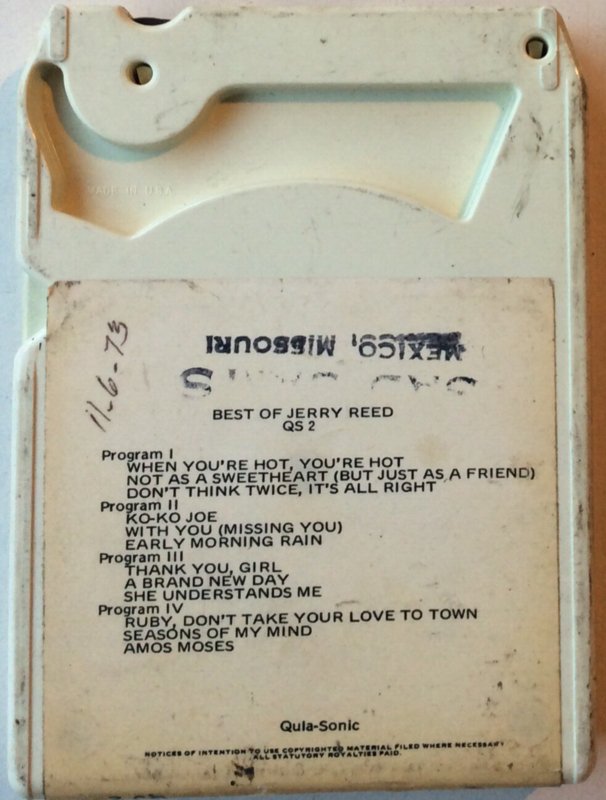 MADE IN U.S.A.
11-6-73
MEXICO, MISSOURI
BEST OF JERRY REED
QS 2
Program I
WHEN YOU'RE HOT, YOU'RE HOT
NOT AS A SWEETHEART (BUT JUST AS A FRIEND)
DON'T THINK TWICE, IT'S ALL RIGHT
Program II
KO-KO JOE
WITH YOU (MISSING YOU)
EARLY MORNING RAIN
Program III
THANK YOU, GIRL
A BRAND NEW DAY
SHE UNDERSTANDS ME
Program IV
RUBY, DON'T TAKE YOUR LOVE TO TOWN
SEASONS OF MY MIND
AMOS MOSES
Qula-Sonic
NOTICES OF INTENTION TO USE COPYRIGHTED MATERIAL FILED WHERE NECESSARY
ALL STATUTORY ROYALTIES PAID.